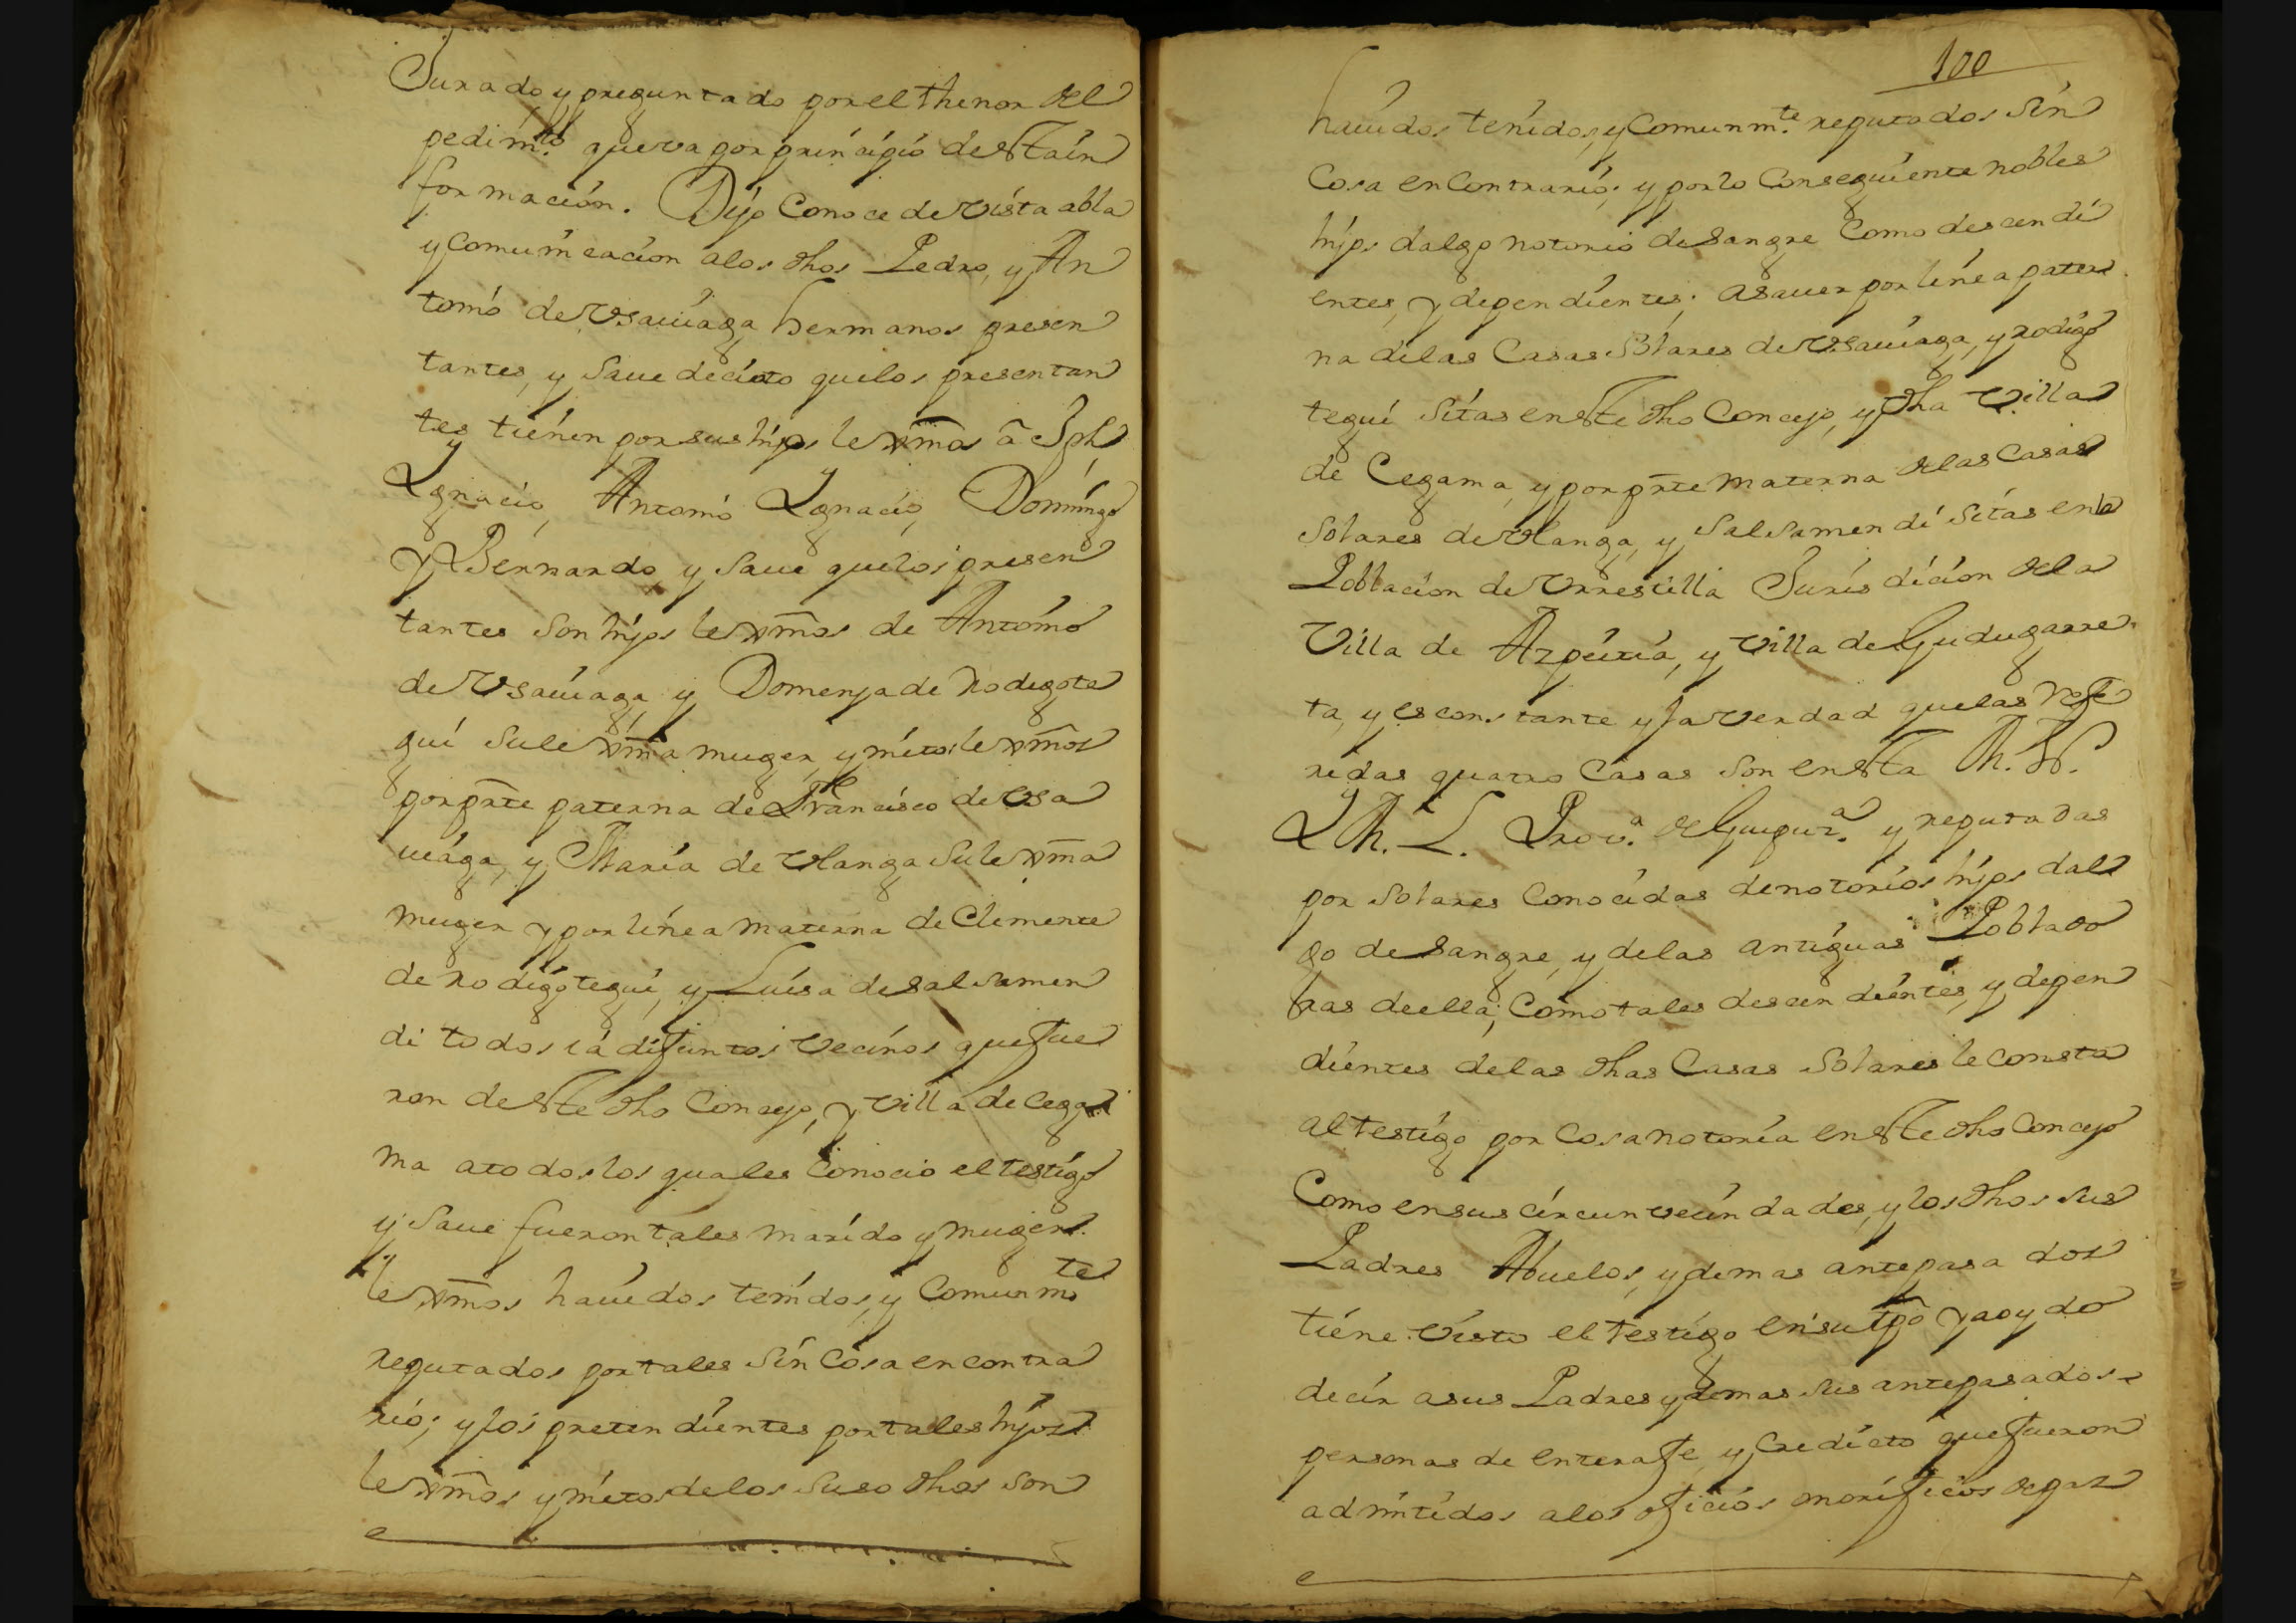 Jurado, y preguntado por el thenor del
pedim.to que va por prinçipio de esta in
formacion. Dijo Conoce de vista abla
y Comunicacion alos dhos Pedro, y An
tonio de Vsauiaga hermanos presen
tantes, y Saue decierto quelos presentan
tes tienen por sus hijos lexmos â Jph
Ygnacio, Antonio Ygnacio, Domingo
y Bernardo, y Saue quelos presen
tantes Son hijos lexmos de Antonio
de Vsauiaga y Domenja de Rodigote
gui Su lexma muger, y nietos lexmos
por prte paterna de Francisco de Vsa
uiaga, y Maria de Olanga Su lexma
muger y por linea materna de Climente
de Rodigotegui, y Luisa de Salsamen
di todos ia difuntos Vecinos que fue
ron de este dho Concejo, y Villa de Cega
ma atodos los quales Conocio el testigo
y Saue fueron tales marido y muger
lexmos hauidos tenidos, y Comunmte
reputados por tales Sin Cosa en contra
rio; y los pretendientes por tales hijos
lexmos y nietos delos Suso dhos Son
100
hauidos tenidos, y Comunm.te reputados Sin
Cosa en Contrario; y por lo Conseguiente nobles
hijos dalgo notorio de Sangre Como descendi
entes, y dependientes; asauer por linea pater
na delas Casas Solares de Vsauiaga, y Rodigo
tegui Sitas en este dho Concejo, y dha Villa
de Cegama, y por prte materna delas Casas
Solares de Olanga, y Salsamendi Sitas en la
Poblacion de Vrrestilla Jurisdicion dela
Villa de Azpeitia, y Villa de Gudugarre
ta, y es constante y la verdad quelas refe
ridas quatro Casas Son en esta M. N.
Y M. L. Prov.a de Guipuz.a y reputadas
por Solares Conocidas de notorios hijos dal
go de Sangre, y delas antiguas Poblado
ras de ella; Como tales descendientes, y depen
dientes delas dhas Casas Solares le consta
al testigo por Cosa notoria en este dho Concejo
Como en sus circunvecindades, y los dhos sus
Padres Abuelos, y demas antepasados
tiene Visto el testigo en su tpo y a oydo
decir a sus Padres y demas sus antepasados
personas de entera fe, y Credicto que fueron
admitidos alos oficios onorificos de paz